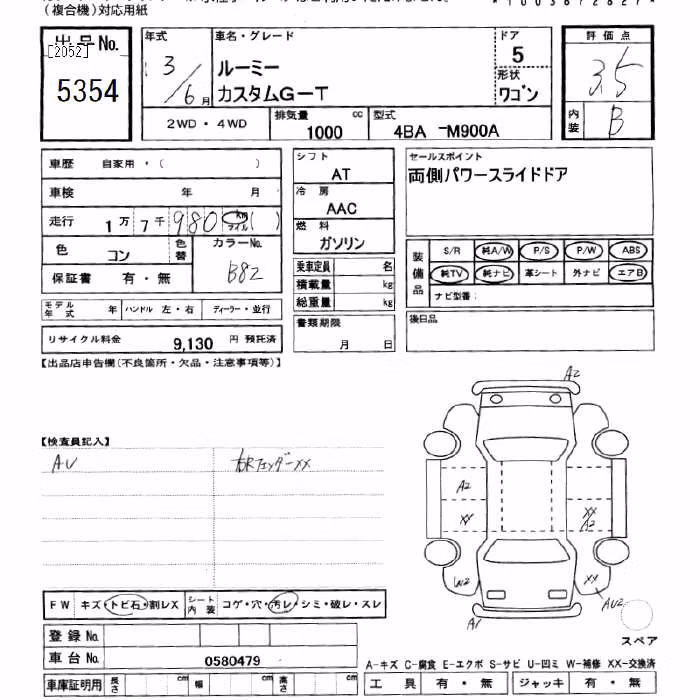 (複合機)対応用紙
出品No.
[2052]
5354
年式
3/6月
車名・グレード
ルーミー
カスタムG-T
ドア
5
形状
ワゴン
評価点
3.5
内装
B
2WD・4WD
排気量
1000 cc
型式
4BA -M900A
車歴 自家用・( )
車検 年 月
走行 1万7千980 km マイル ( )
色 コン
色替
カラーNo.
B82
保証書 有・無
モデル年式 年 ハンドル 左・右 ディーラー・並行
リサイクル料金 9,130 円 預託済
シフト
AT
冷房
AAC
燃料
ガソリン
乗車定員 名
積載量 kg
総重量 kg
書類期限
月 日
セールスポイント
両側パワースライドドア
装備品
S/R 純A/W P/S P/W ABS
純TV 純ナビ 革シート 外ナビ エアB
ナビ型番:
後日品
【出品店申告欄(不良箇所・欠品・注意事項等)】
【検査員記入】
AU
右Rフェンダーxx
A2
A2
XX
XX
A2
W2
XX
AU2
A1
スペア
FW キズ・トビ石・割レX
シート内装 コゲ・穴・汚レ・シミ・破レ・スレ
登録No.
車台No. 0580479
車庫証明用 長さ cm 幅 cm 高さ cm
A-キズ C-腐食 E-エクボ S-サビ U-凹ミ W-補修 XX-交換済
工具 有・無 ジャッキ 有・無